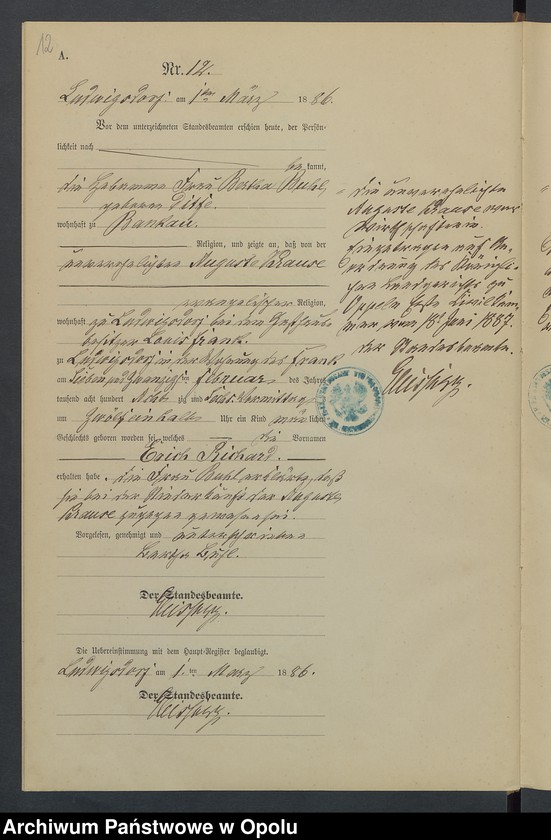 12
A.
Nr. 12.
Ludwigsdorf am 1ten März 1886.
Vor dem unterzeichneten Standesbeamten erschien heute, der Persön-
lichkeit nach
bekannt,
die Hebamme Frau Bertha Buhl,
geborene
wohnhaft zu Bankau.
Religion, und zeigte an, daß von der
unverehelichten Auguste Krause
evangelischer Religion,
wohnhaft zu Ludwigsdorf bei dem Gasthaus-
besitzer Louis Frank.
zu Ludwigsdorf in der Wohnung des Frank
am Sieben und zwanzigsten Februar des Jahres
tausend acht hundert Acht zig und Sechs Vormittags
um Zwölfeinhalb Uhr ein Kind männlichen
Geschlechts geboren worden sei, welches die Vornamen
Erich Richard.
erhalten habe. Die Frau Buhl erklärte, daß
sie bei der Niederkunft der Auguste
Krause zugegen gewesen sei.
Vorgelesen, genehmigt und unterschrieben
Bertha Buhl.
Der Standesbeamte.
Die Uebereinstimmung mit dem Haupt-Register beglaubigt.
Ludwigsdorf am 1ten März 1886.
Der Standesbeamte.
die unverehelichte
Auguste Krause war
Wirthschafterin.
Eingetragen auf An-
ordnung des Königli-
chen Landgerichts zu
Oppeln
vom 18. Juni 1887.
Der Standesbeamte.
Archiwum Państwowe w Opolu